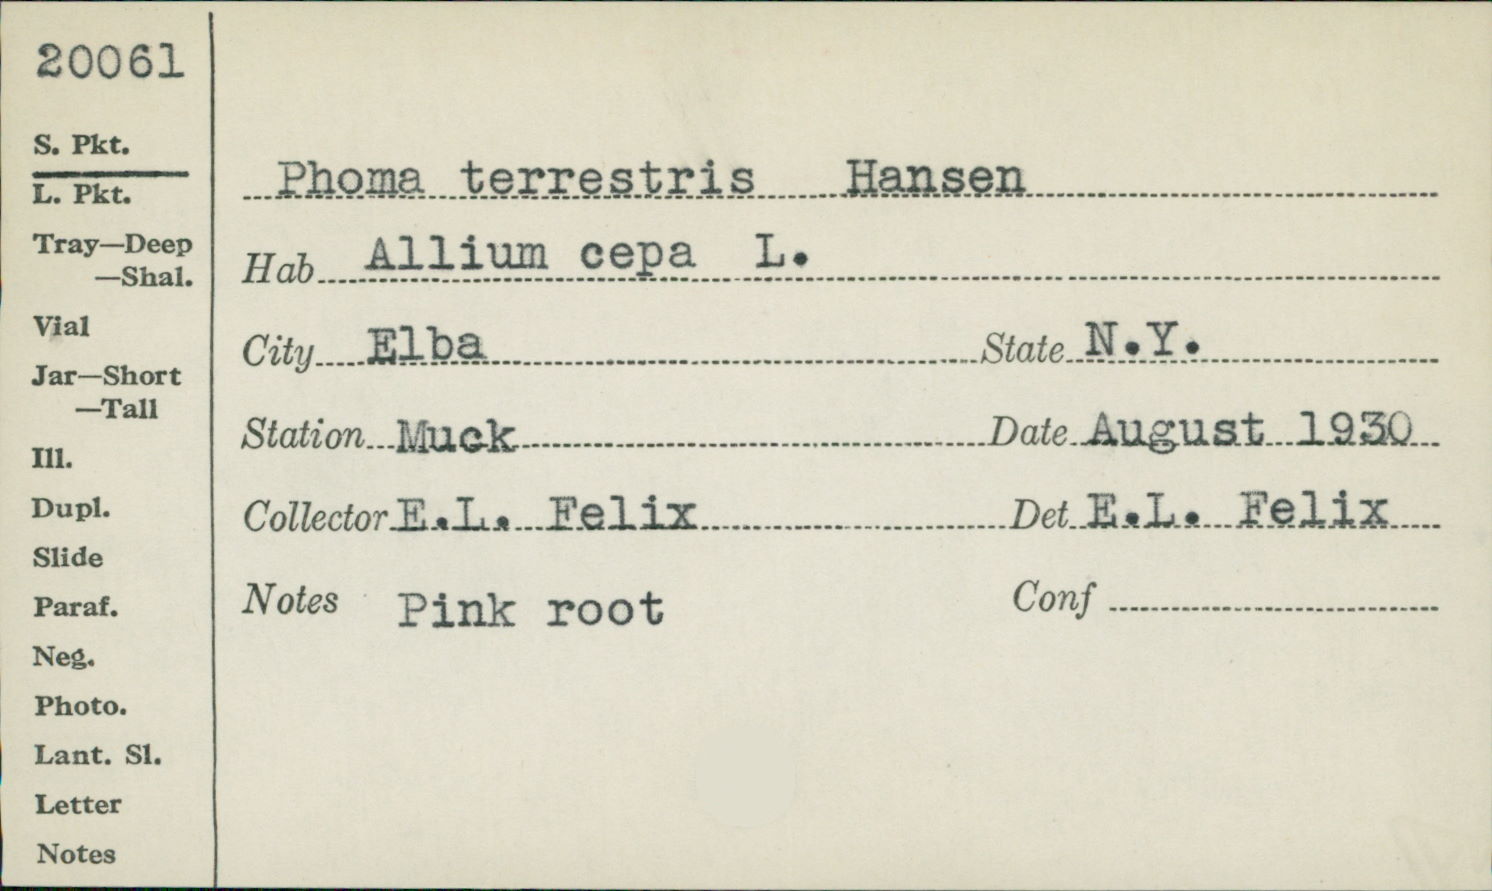 20061
S. Pkt.
L. Pkt.
Tray—Deep
—Shal.
Vial
Jar—Short
—Tall
Ill.
Dupl.
Slide
Paraf.
Neg.
Photo.
Lant. Sl.
Letter
Notes
Phoma terrestris Hansen
Hab Allium cepa L.
City Elba State N.Y.
Station Muck Date August 1930
Collector E.L. Felix Det E.L. Felix
Notes Pink root Conf